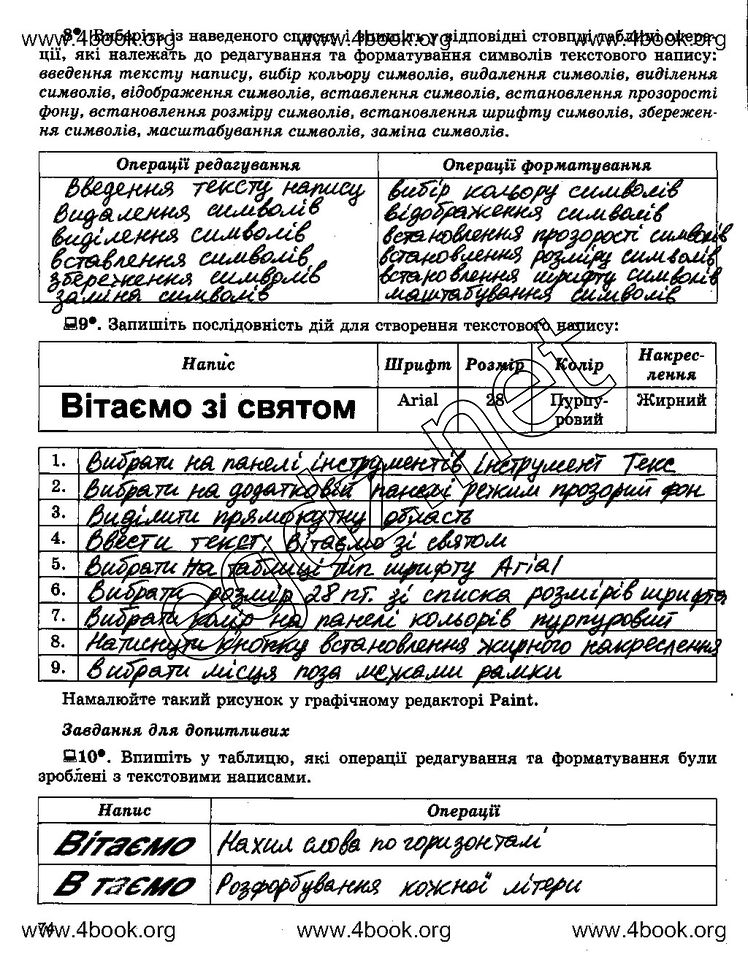 www.4book.org www.4book.org www.4book.org
8. Виберіть із наведеного списку і впишіть у відповідні стовпці таблиці опера-
ції, які належать до редагування та форматування символів текстового напису:
введення тексту напису, вибір кольору символів, видалення символів, виділення
символів, відображення символів, вставлення символів, встановлення прозорості
фону, встановлення розміру символів, встановлення шрифту символів, збережен-
ня символів, масштабування символів, заміна символів.
Операції редагування Операції форматування
Введення тексту напису вибір кольору символів
Видалення символів відображення символів
виділення символів встановлення прозорості символів
вставлення символів встановлення розміру символів
збереження символів встановлення шрифту символів
заміна символів маштабування символів
9. Запишіть послідовність дій для створення текстового напису:
Напис Шрифт Розмір Колір Накрес-
лення
Вітаємо зі святом Arial 28 Пурпу-
ровий Жирний
1. Вибрати на панелі інструментів інструмент Текс
2. Вибрати на додатковій панелі режим прозорий фон
3. Виділити прямокутну область
4. Ввести текст Вітаємо зі святом
5. Вибрати на таблиці тіп шрифту Arial
6. Вибрати розмір 28 пт. зі списка розмірів шрифта
7. Вибрати колір на панелі кольорів пурпуровий
8. Натиснути кнопку встановлення жирного накреслення
9. Вибрати місця поза межами рамки
Намалюйте такий рисунок у графічному редакторі Paint.
Завдання для допитливих
10. Впишіть у таблицю, які операції редагування та форматування були
зроблені з текстовими написами.
Напис Операції
Вітаємо Нахил слова по горизонталі
В таємо Розфорбування кожної літери
74
www.4book.org www.4book.org www.4book.org